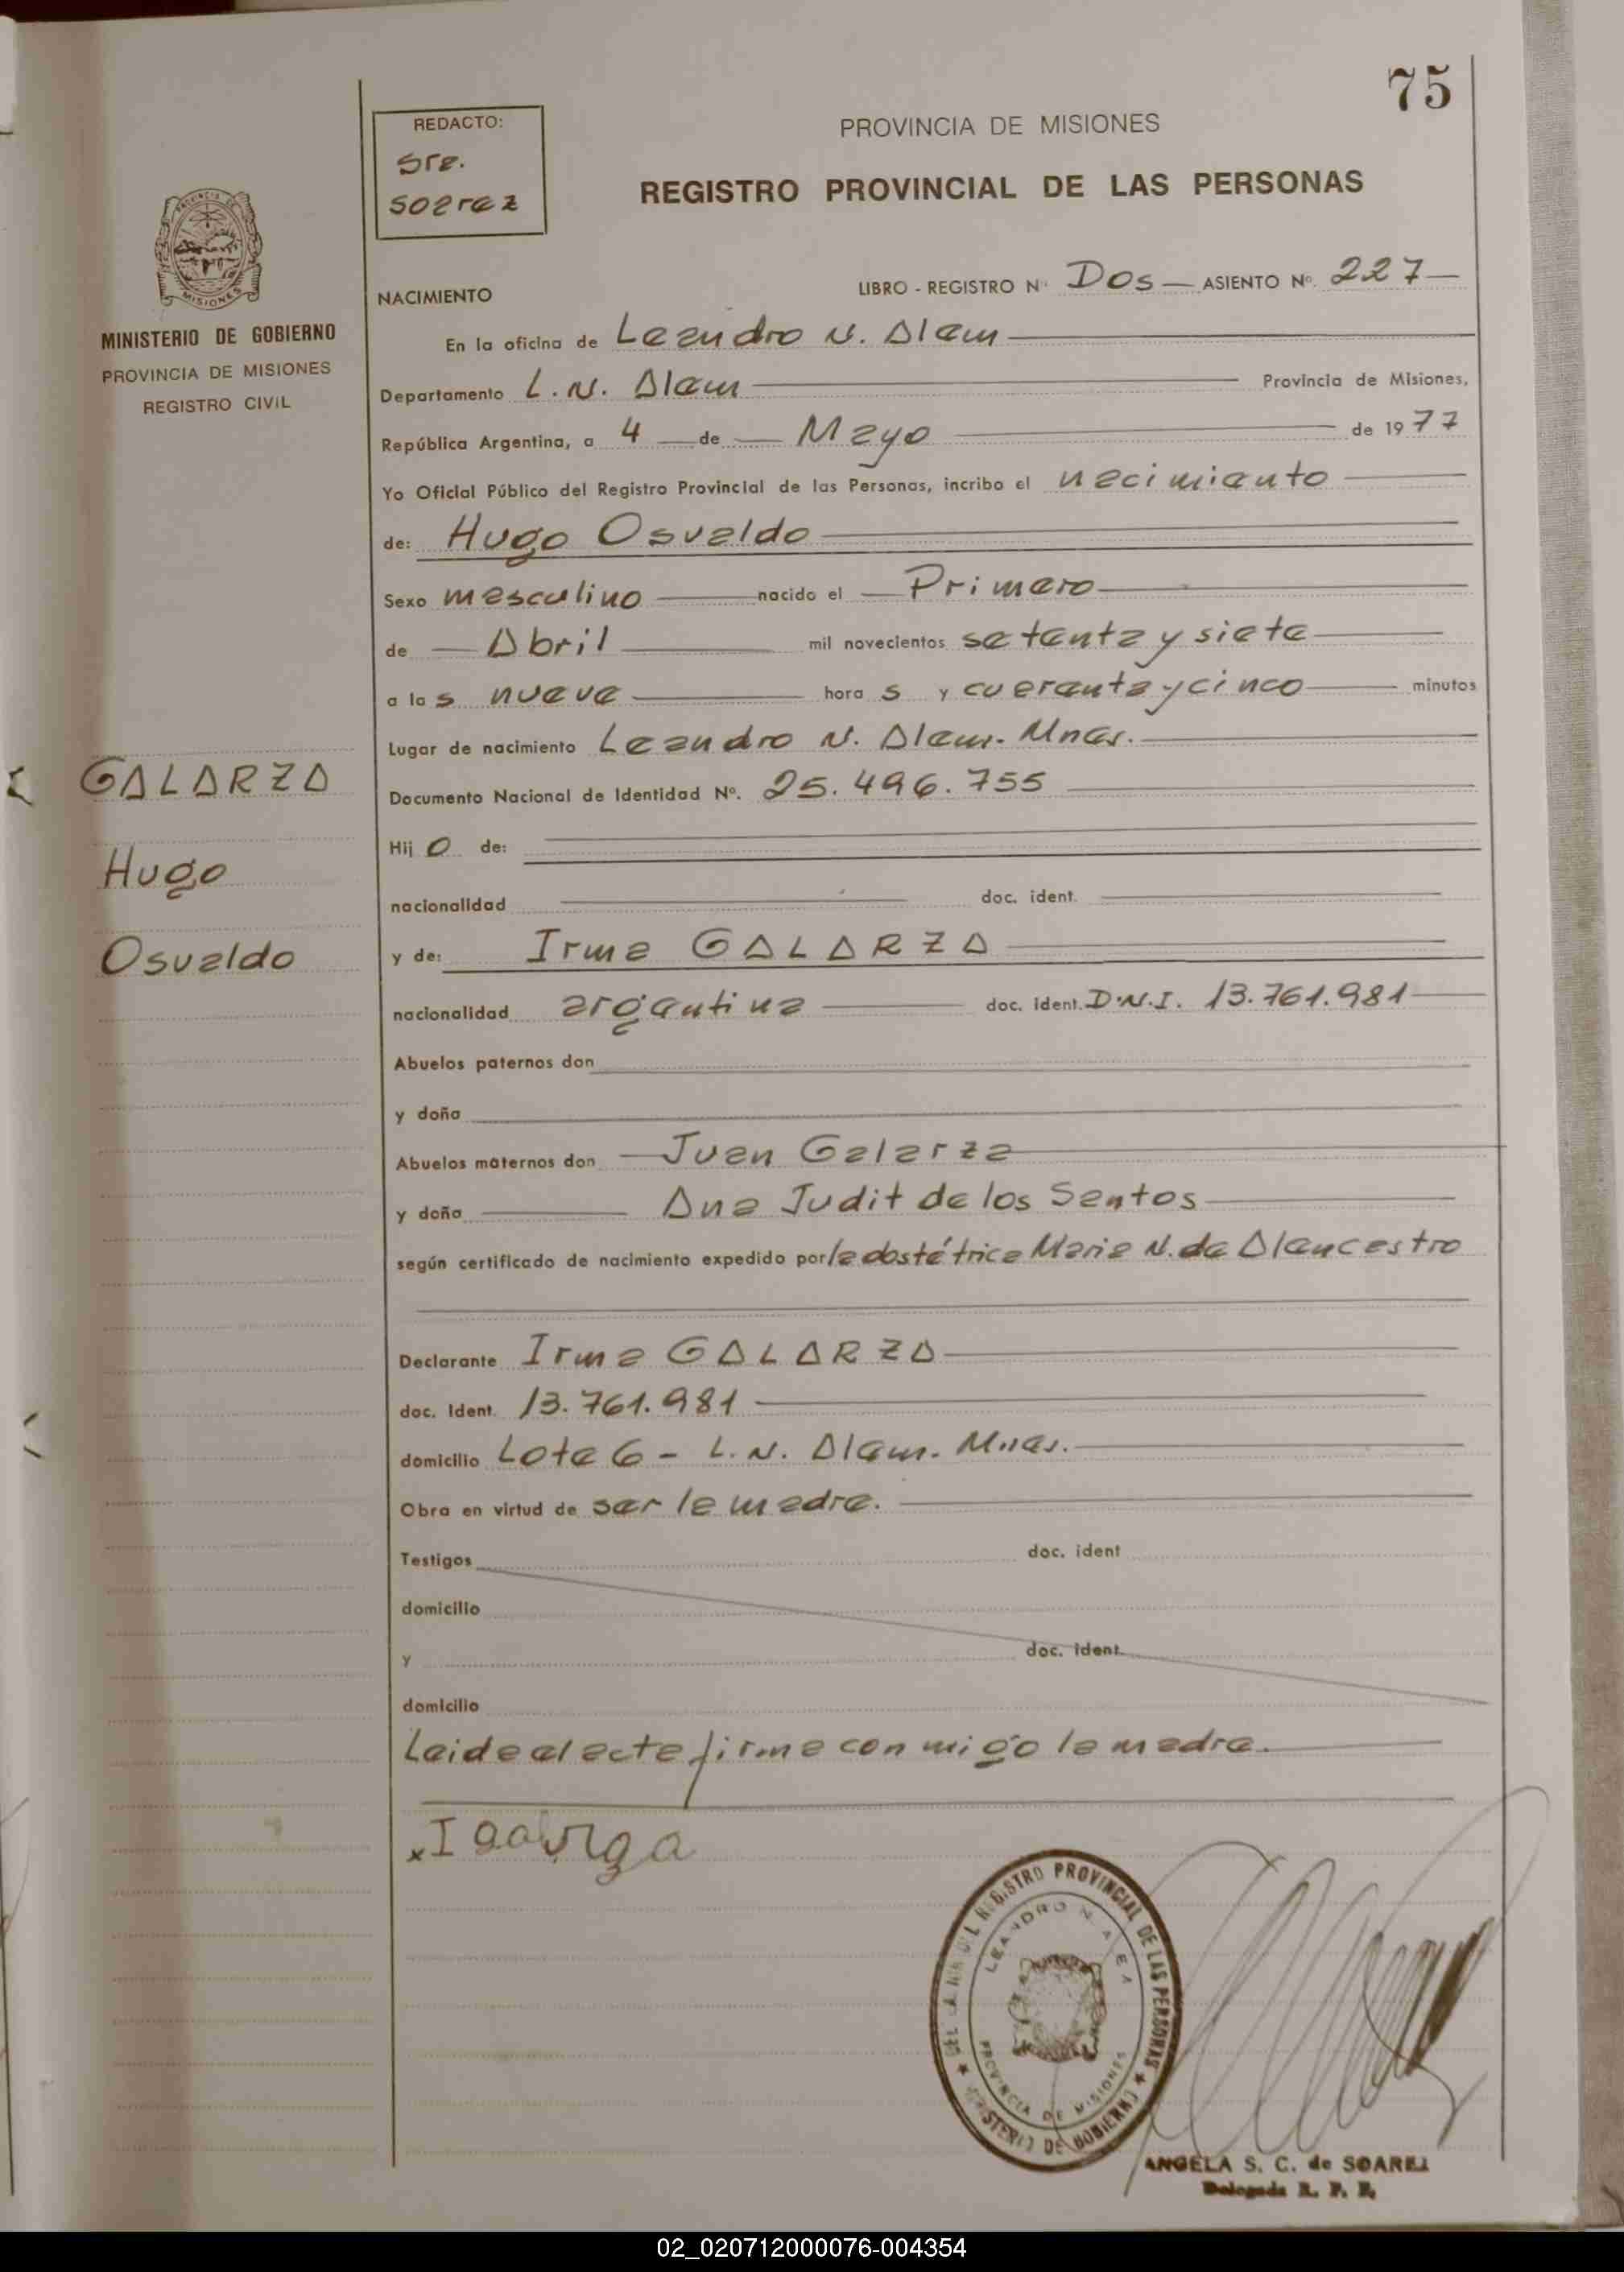 75
REDACTO:
Sra.
Soarez
PROVINCIA DE MISIONES
REGISTRO PROVINCIAL DE LAS PERSONAS
MISIONES
MINISTERIO DE GOBIERNO
PROVINCIA DE MISIONES
REGISTRO CIVIL
NACIMIENTO
LIBRO - REGISTRO Nº Dos — ASIENTO Nº 227
En la oficina de Leandro N. Alem
Departamento L. N. Alem Provincia de Misiones,
República Argentina, a 4 de Mayo de 1977
Yo Oficial Público del Registro Provincial de las Personas, incribo el nacimiento
de: Hugo Osvaldo
Sexo masculino nacido el Primero
de Abril mil novecientos setenta y siete
a las nueve horas y cuarenta y cinco minutos
Lugar de nacimiento Leandro N. Alem. Mnes.
Documento Nacional de Identidad Nº. 25.496.755
Hijo de:
nacionalidad doc. ident.
y de: Irma GALARZA
nacionalidad argentina doc. ident. D.N.I. 13.761.981
Abuelos paternos don
y doña
Abuelos maternos don Juan Galarza
y doña Ana Judit de los Santos
según certificado de nacimiento expedido por la obstétrica Maria N. de Alencastro
Declarante Irma GALARZA
doc. Ident. 13.761.981
domicilio Lote 6 - L. N. Alem. Mnes.
Obra en virtud de ser la madre.
Testigos doc. ident
domicilio
y doc. ident.
domicilio
Leida el acta firma conmigo la madre.
GALARZA
Hugo
Osvaldo
x I galarza
REGISTRO PROVINCIAL DE LAS PERSONAS
MINISTERIO DE GOBIERNO
LEANDRO N. ALEM
PROVINCIA DE MISIONES
ANGELA S. C. de SOAREZ
Delegada R. P. P.
02_020712000076-004354